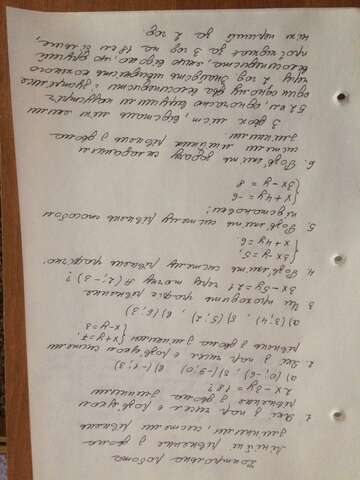 Контрольна робота
Лінійні рівняння з двома
змінними, системи рівнянь
1. Які з пар чисел є розв'язком
рівняння з двома змінними
2x - 3y = 18?
а) (0; -6), б) (-9; 0) в) (-1; 3)
2. Які з пар чисел є розв'язком системи
рівнянь з двома змінними { x+y=7,
x-y=3
а) (3; 4), б) (5; 2), в) (6; 3)
3. Чи проходить графік рівняння
3x - 5y = 21 через точку А (2; -3)?
4. Розв'яжіть систему рівнянь графічно:
{ 3x - y = 5;
x + 4y = 6.
5. Розв'яжіть систему рівнянь способом
підстановки:
{ x + 4y = -6
3x - y = 8
6. Розв'яжіть задачу складанням
системи рівнянь з двома
змінними:
З двох міст, відстань між якими
52 км, одночасно виїхали назустріч
один одному два велосипедисти і зустрілися
через 2 год. Знайдіть швидкість кожного
велосипедиста, якщо відомо, що другий
проїжджає за 3 год на 18 км більше,
ніж перший за 2 год.